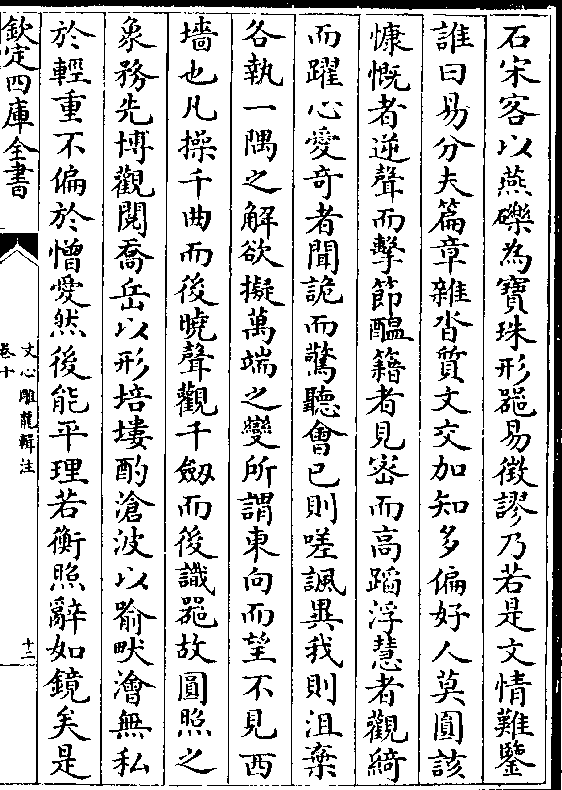 石宋客以燕礫為寶珠形器易徵謬乃若是文情難鑒
誰曰易分夫篇章雜沓質文交加知多偏好人莫圓該
慷慨者逆聲而擊節醖籍者見宻而高蹈浮慧者觀綺
而躍心愛奇者聞詭而驚聽會已則嗟諷異我則沮棄
各執一隅之解欲擬萬端之變所謂東向而望不見西
墻也凡操千曲而後曉聲觀千劔而後識器故圓照之
象務先博觀閱喬岳以形培塿酌滄波以喻畎澮無私
於輕重不偏於憎愛然後能平理若衡照辭如鏡矣是
欽定四庫全書
文心雕龍輯注
卷十
十二